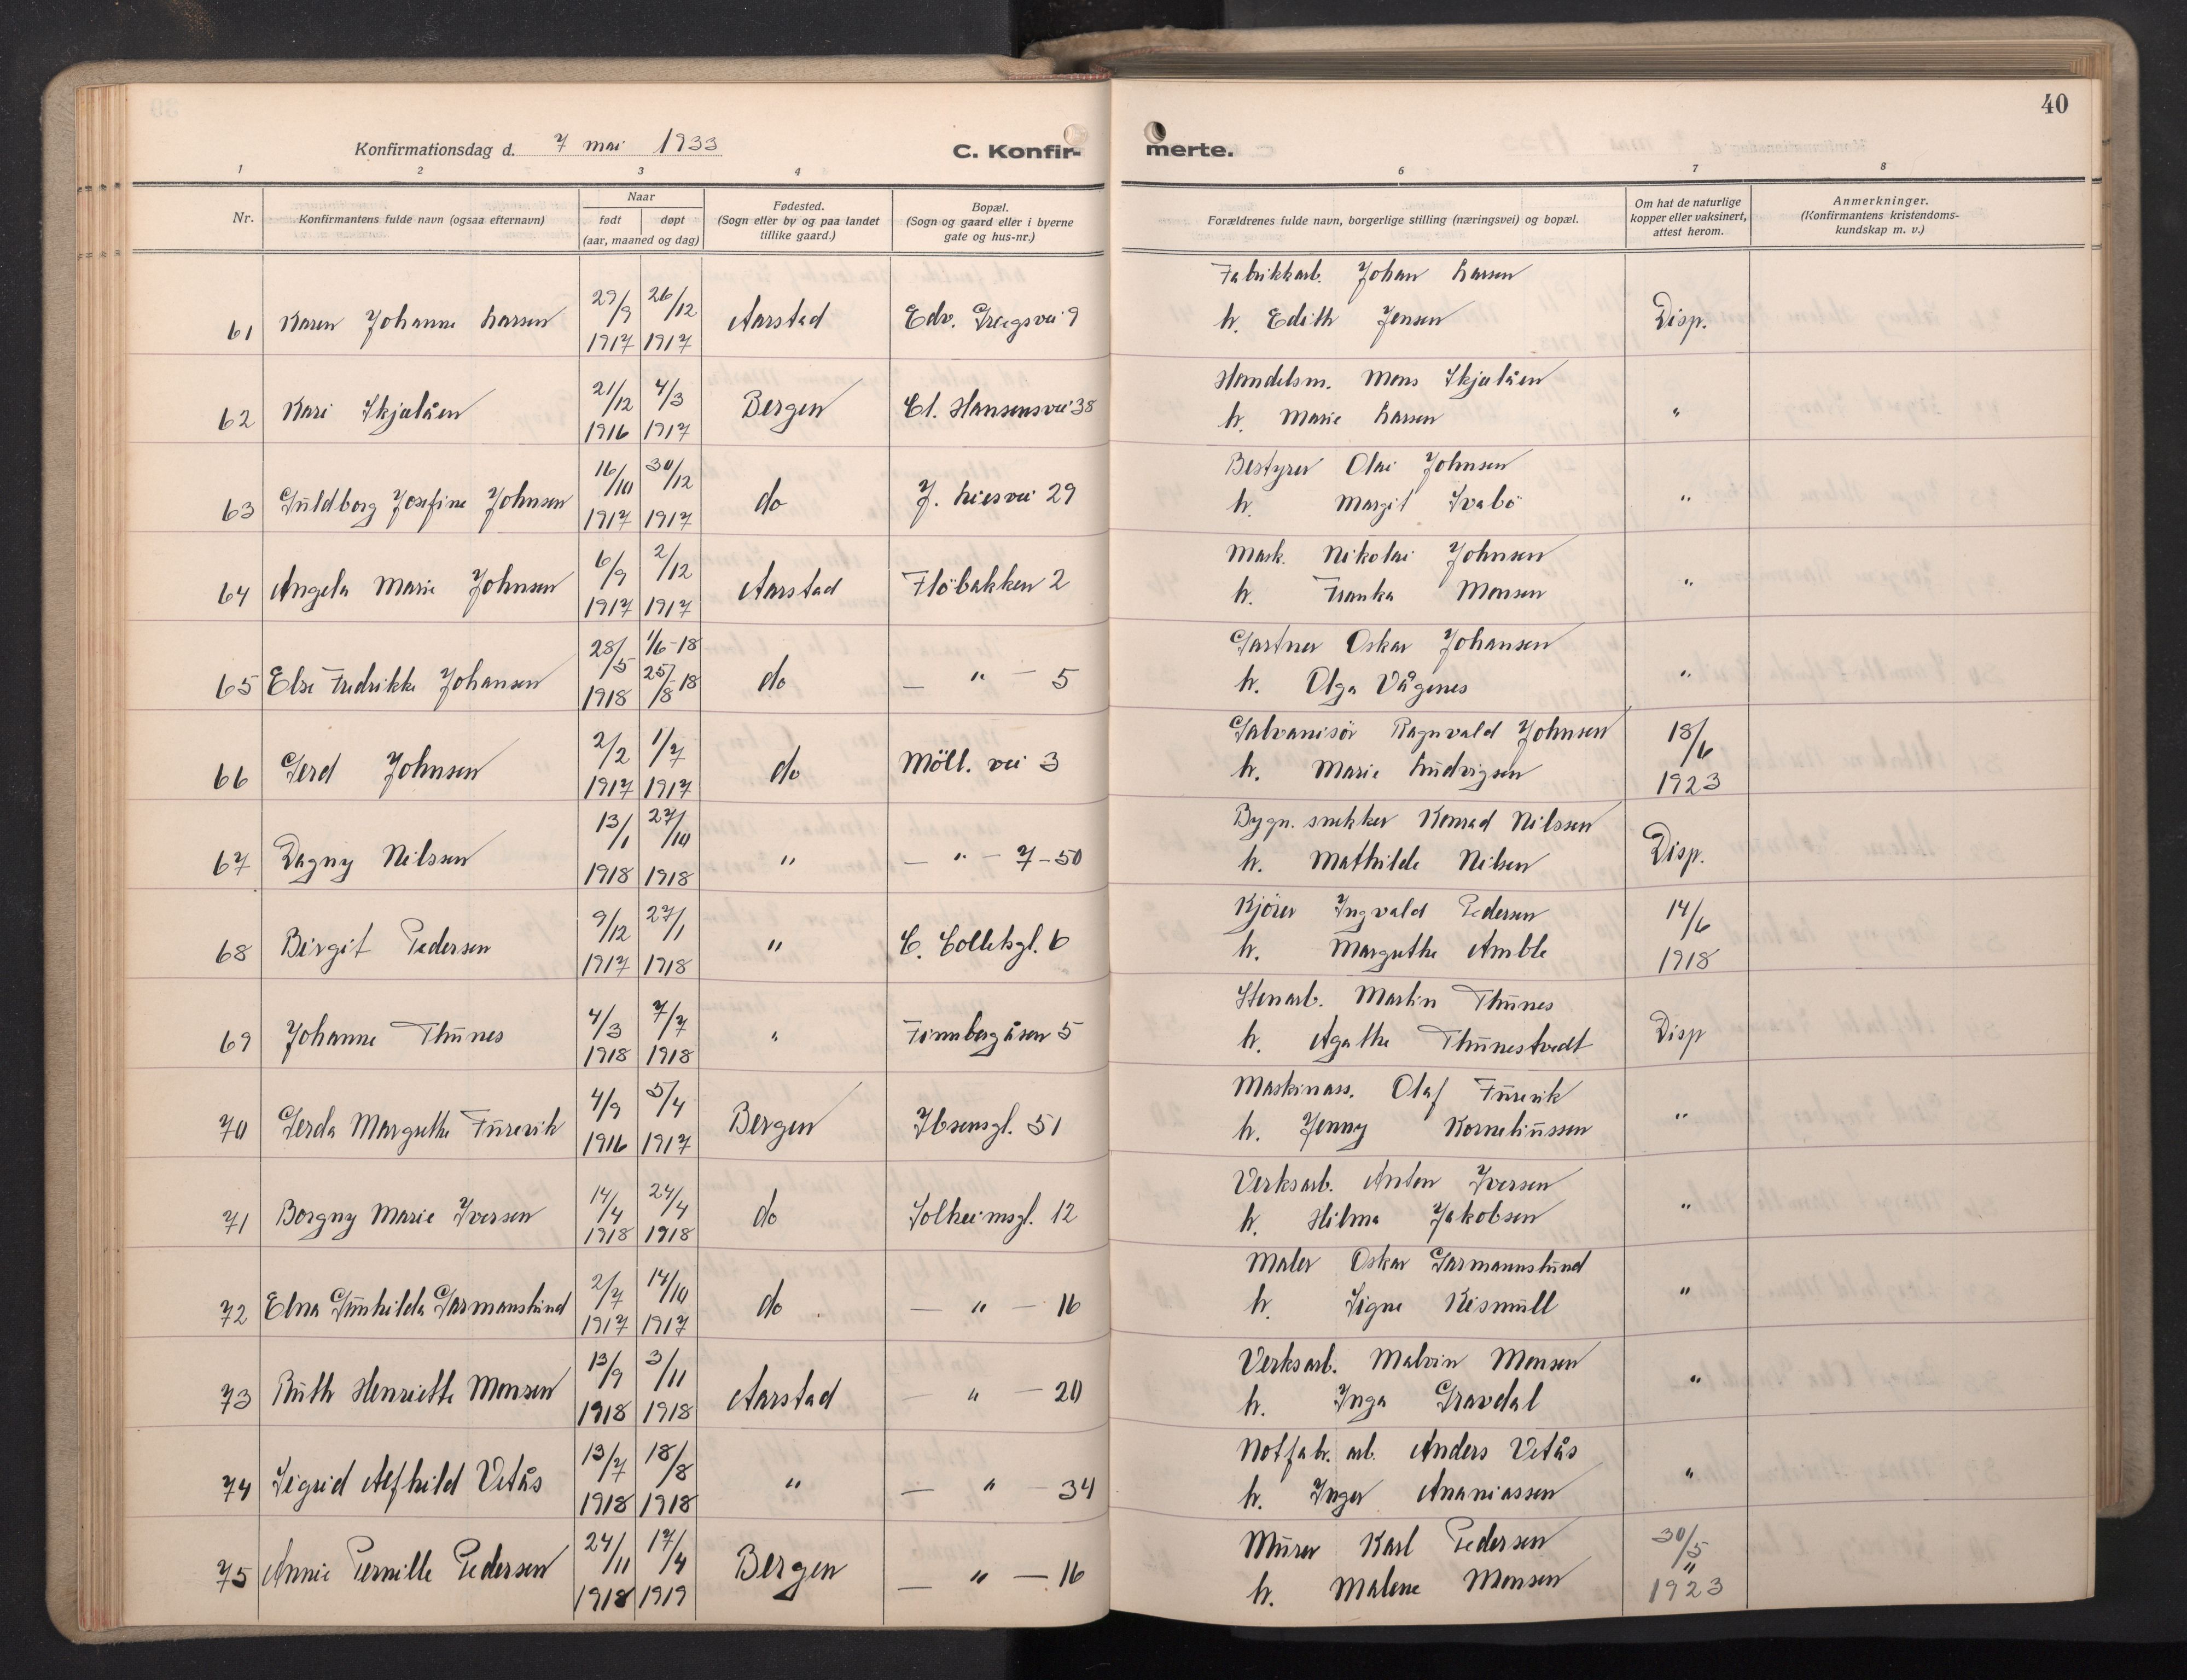 40
Konfirmationsdag d. 7 mai 1933
C. Konfir-
merte.
1 2 3 4 6 7 8
Nr.
Konfirmantens fulde navn (ogsaa efternavn)
Naar
født døpt
(aar, maaned og dag)
Fødested.
(Sogn eller by og paa landet
tillike gaard.)
Bopæl.
(Sogn og gaard eller i byerne
gate og hus-nr.)
Forældrenes fulde navn, borgerlige stilling (næringsvei) og bopæl.
Om hat de naturlige
kopper eller vaksinert,
attest herom.
Anmerkninger.
(Konfirmantens kristendoms-
kundskap m. v.)
61 Karen Johanne Larsen 29/9 1917 26/12 1917 Aarstad Edv. Griegsvei 9
Fabrikkarb. Johan Larsen
h. Edith Jensen
Disp.
62 Kari Skjælåen 21/12 1916 4/3 1917 Bergen Cl. Hansensvei 38
Handelsm. Mons Skjælåen
h. Marie Larsen
"
63 Guldborg Josefine Johnsen 16/10 1917 30/12 1917 do J. Liesvei 29
Bestyrer Olai Johnsen
h. Margit Svabö
"
64 Angela Marie Johnsen 6/9 1917 2/12 1917 Aarstad Flöbakken 2
Mask. Nikolai Johnsen
h. Franka Monsen
"
65 Else Fredrikke Johansen 28/5 1918 1/6-18 25/8-18 do — " — 5
Gartner Oskar Johansen
h. Olga Vågenes
"
66 Gerd Johnsen 2/2 1917 1/7 1917 do Möll. vei 3
Galvanisör Ragnvald Johnsen
h. Marie Ludvigsen
18/6 1923
67 Dagny Nilssen 13/1 1918 27/10 1918 " — " — 7-50
Bygn. snekker Konrad Nilssen
h. Mathilde Nilsen
Disp.
68 Birgit Pedersen 9/12 1917 27/1 1918 " C. Colletsgt. 6
Kjörer Ingvald Pedersen
h. Margrethe Amble
14/6 1918
69 Johanne Thunes 4/3 1918 7/7 1918 " Finnbergåsen 5
Stenarb. Martin Thunes
h. Agathe Thunestvedt
Disp
70 Gerda Margrethe Furevik 4/9 1916 5/4 1917 Bergen Ibsensgt. 51
Maskinass. Olaf Furevik
h. Jenny Korneliussen
"
71 Borgny Marie Iversen 14/4 1918 24/4 1918 do Solheimsgt. 12
Verksarb. Anton Iversen
h. Hilma Jakobsen
"
72 Elna Gunhilda Garmanslund 2/7 1917 14/10 1917 do — " — 16
Maler Oskar Garmannslund
h. Signe Rismull
"
73 Ruth Henriette Monsen 13/9 1918 3/11 1918 Aarstad — " — 20
Verksarb. Malvin Monsen
h. Inga Gravdal
"
74 Sigrid Alfhild Vetås 13/7 1918 18/8 1918 " — " — 34
Notfabr. arb. Anders Vetås
h. Inger Ananiassen
"
75 Annie Pernille Pedersen 24/11 1918 17/4 1919 Bergen — " — 16
Murer Karl Pedersen
h. Malene Monsen
30/5 " 1923